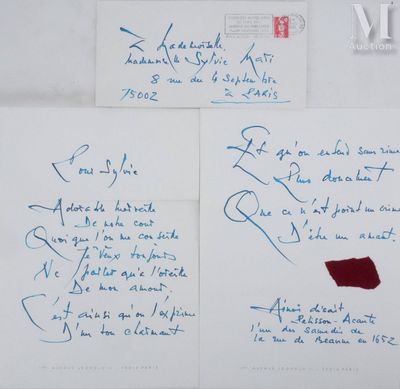 M
Auction
À Mademoiselle
Mademoiselle Sylvie
8 rue du 4 Septembre
75002 à PARIS
Pour Sylvie
Adorable
De notre cour
Quoi que l'on me conseille
Je veux toujours
Ne parler qu'à l'oreille
De mon amour.
C'est ainsi qu'on s'exprime
D'un ton charmant
Et qu'on entend sans rime
Plus doucement
Que ce n'est point un crime
D'être un amant.
Ainsi disait
Pelisson-Acante
l'un des samedis de
la rue de Beaune en 1652